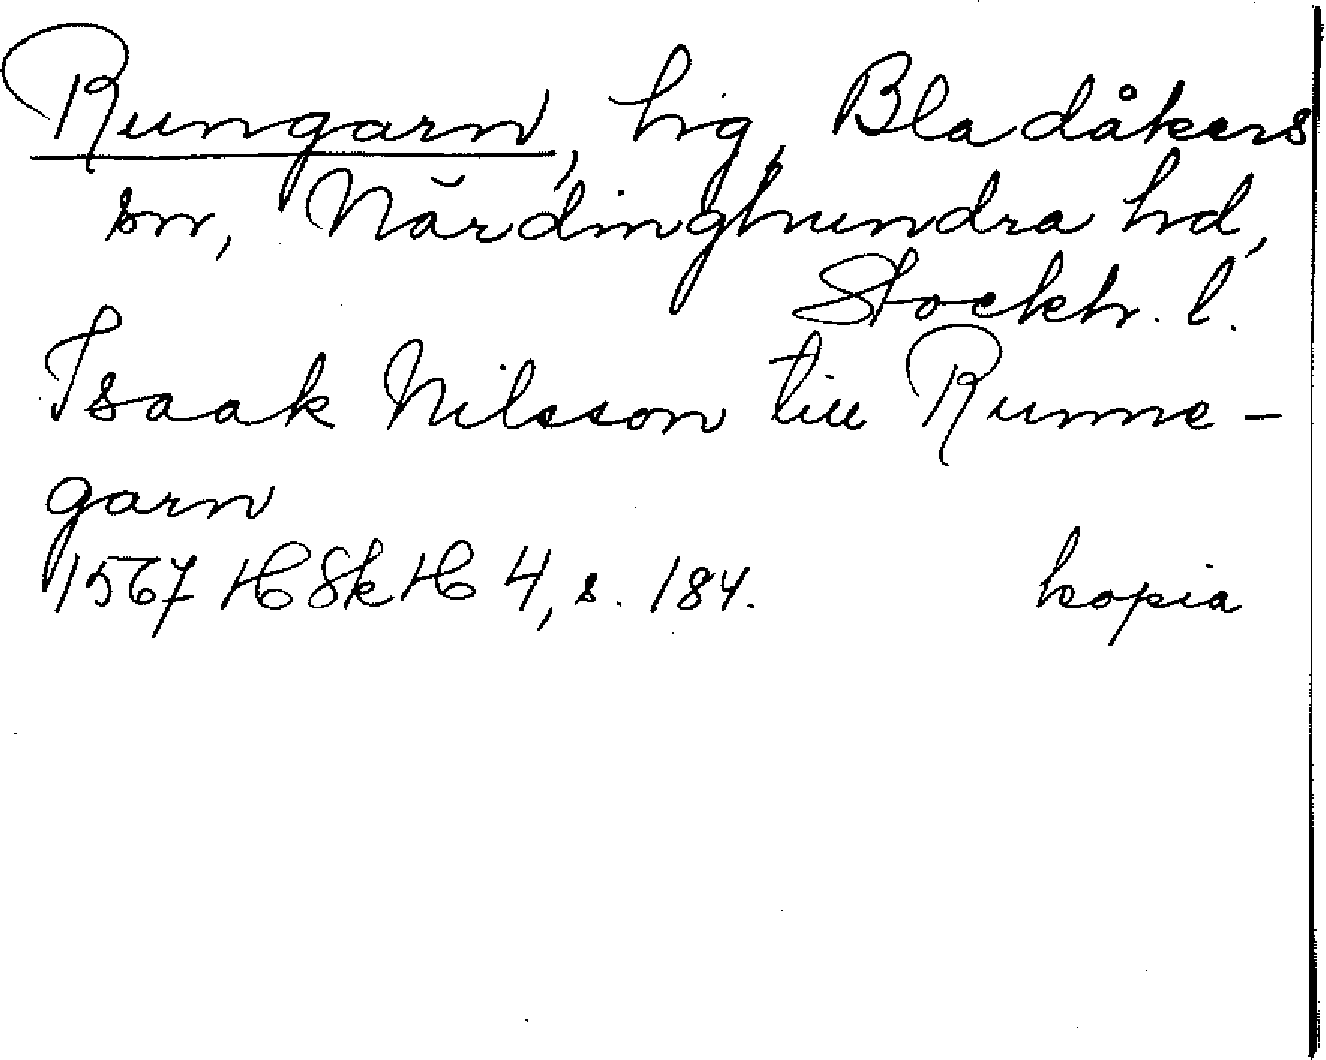 Rungarn, hg, Bladåkers
sn, Närdinghundra hd,
Stockh. l.
Isaak Nilsson till Runne-
garn
1567 HSkH 4, s. 184. kopia